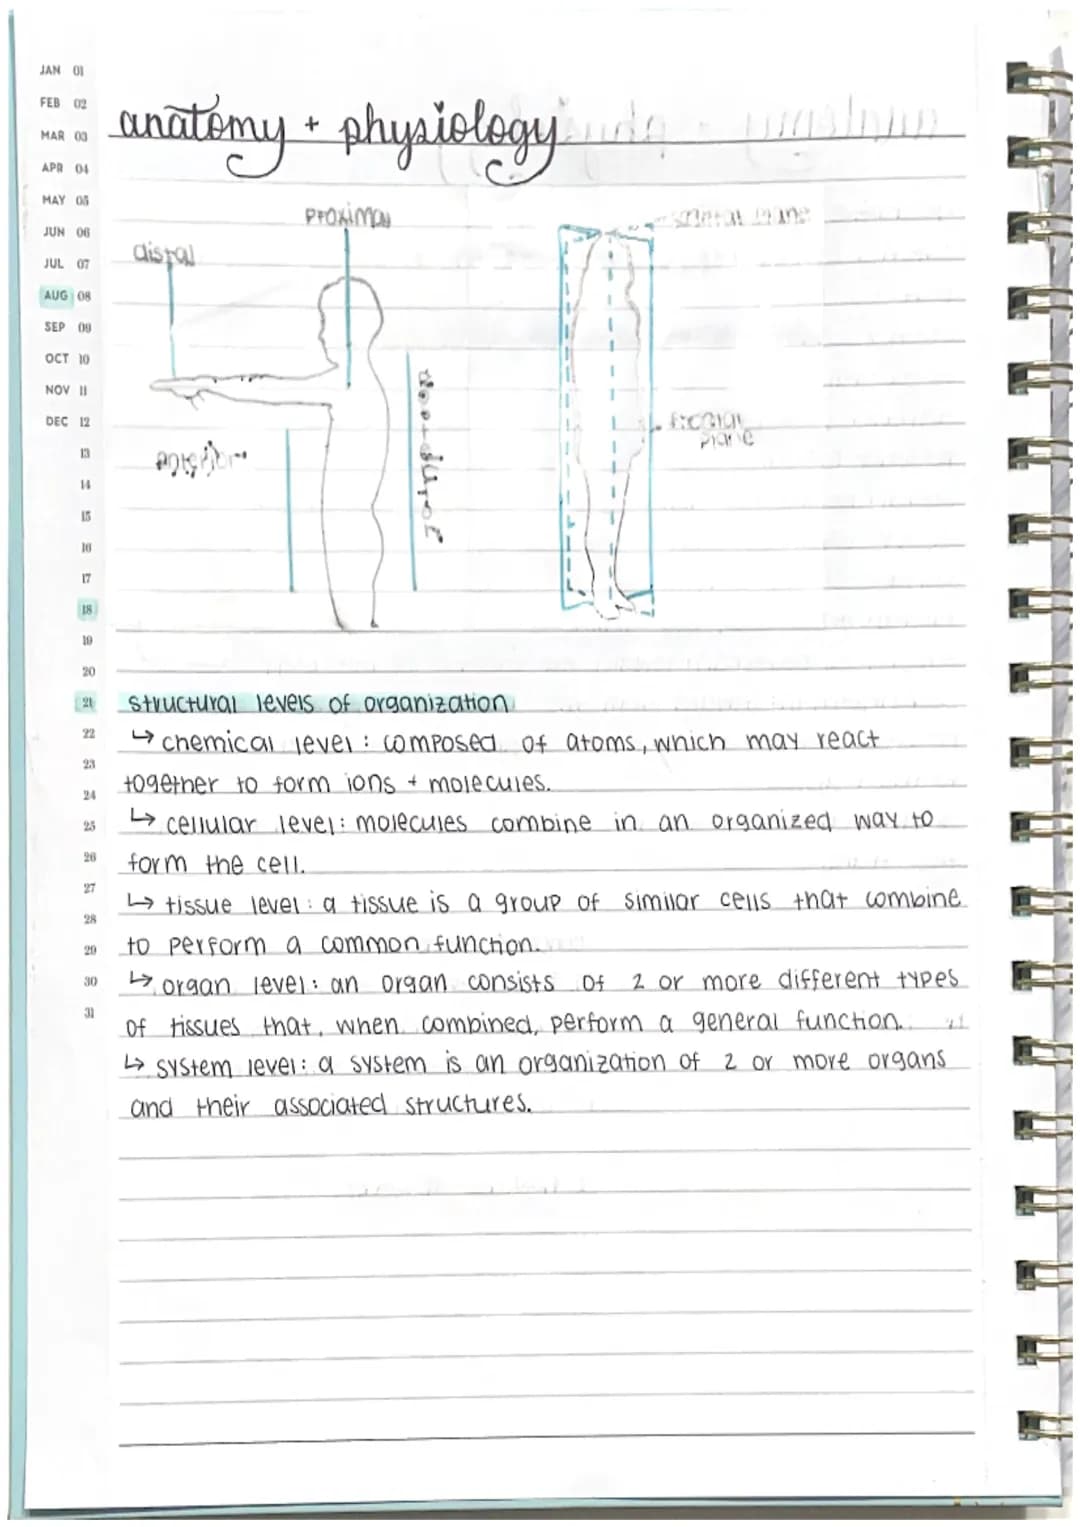 JAN 01
FEB 02
MAR 03
APR 04
MAY 05
JUN 06
JUL 07
AUG 08
SEP 09
OCT 10
NOV 11
DEC 12
13
14
15
16
17
18
19
20
21
22
23
24
25
26
27
28
29
30
31
anatomy + physiology
proximal
distal
plane
structural levels of organization
↳ chemical level: composed of atoms, which may react
together to form ions + molecules.
↳ cellular level: molecules combine in an organized way to
form the cell.
↳ tissue level: a tissue is a group of similar cells that combine
to perform a common function.
↳ organ level: an organ consists of 2 or more different types
of tissues that, when combined, perform a general function.
↳ system level: a system is an organization of 2 or more organs
and their associated structures.